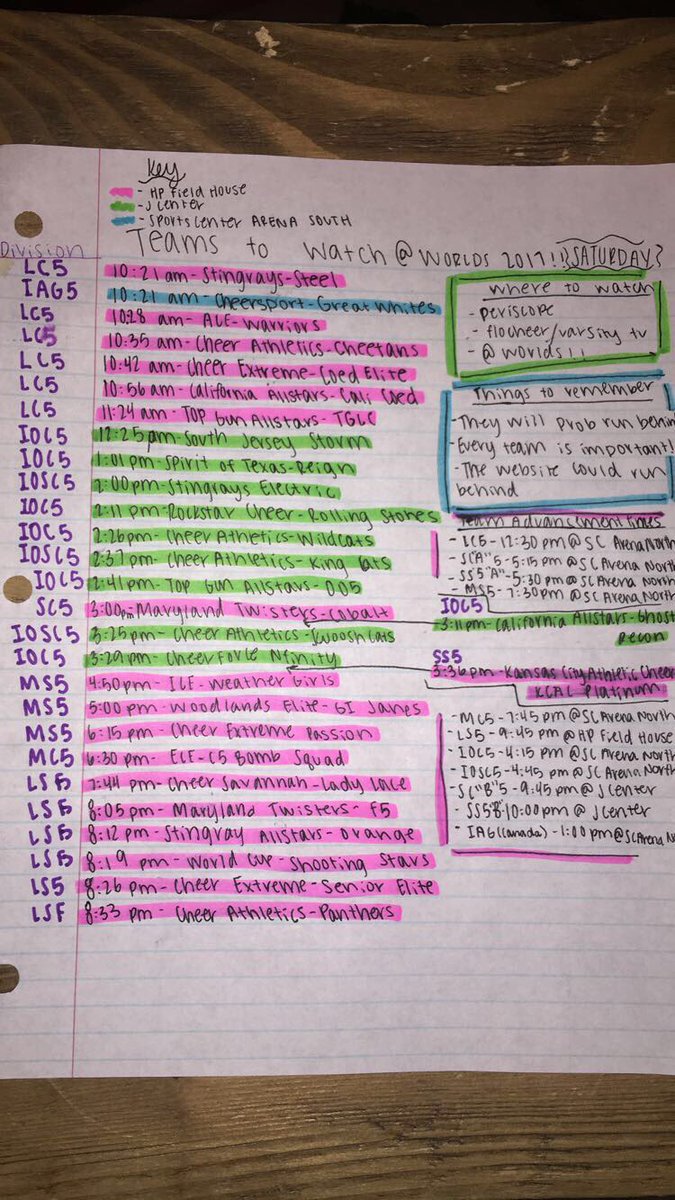 Key
- HP Field House
- J Center
- Sports Center Arena South
Teams to watch @ Worlds 2017! {Saturday}
Division
LC5 10:21 am - Stingrays - Steel
IAG5 10:21 am - Cheersport - Great Whites
LC5 10:28 am - ACE - Warriors
LC5 10:35 am - Cheer Athletics - Cheetahs
LC5 10:42 am - Cheer Extreme - Coed Elite
LC5 10:56 am - California Allstars - Cali Coed
LC5 11:24 am - Top Gun Allstars - TGLC
IOC5 12:25 pm - South Jersey Storm
IOC5 1:01 pm - Spirit of Texas - Reign
IOSC5 2:00 pm - Stingrays Electric
IOC5 2:11 pm - Rockstar Cheer - Rolling Stones
IOC5 2:26 pm - Cheer Athletics - Wildcats
IOSC5 2:37 pm - Cheer Athletics - King Cats
IOC5 2:41 pm - Top Gun Allstars - 005
SC5 3:00 pm Maryland Twisters - Cobalt
IOSC5 3:25 pm - Cheer Athletics - Swooshcats
IOC5 3:29 pm - Cheer Force Nfinity
MS5 4:50 pm - ICE - Weather Girls
MS5 5:00 pm - Woodlands Elite - GI Janes
MS5 6:15 pm - Cheer Extreme Passion
MC5 6:30 pm - ECE - C5 Bomb Squad
LS5 7:44 pm - Cheer Savannah - Lady Lace
LS5 8:05 pm - Maryland Twisters - F5
LS5 8:12 pm - Stingray Allstars - Orange
LS5 8:19 pm - World Cup - Shooting Stars
LS5 8:26 pm - Cheer Extreme - Senior Elite
LSF 8:33 pm - Cheer Athletics - Panthers
Where to watch
- periscope
- flocheer/varsity tv
- @ worlds!!
Things to remember
- They will prob run behind
- Every team is important!
- The website could run
behind
Team Advancment Times
- LC5 - 12:30 pm @ SC Arena North
- SC"A"5 - 5:15 pm @ SC Arena North
- SS5"A" - 5:30 pm @ SC Arena North
- MS5 - 7:30 pm @ SC Arena North
IOC5
3:11 pm - California Allstars - Ghost
Recon
SS5
3:36 pm - Kansas City Athletic Cheer
KCAC Platinum
- MC5 - 7:45 pm @ SC Arena North
- LS5 - 9:45 pm @ HP Field House
- IOC5 - 4:15 pm @ SC Arena North
- IOSC5 - 4:45 pm @ SC Arena North
- SC"B"5 - 9:45 pm @ J Center
- SS5"B" 10:00 pm @ J Center
- IAG (Canada) - 1:00 pm @ SC Arena N